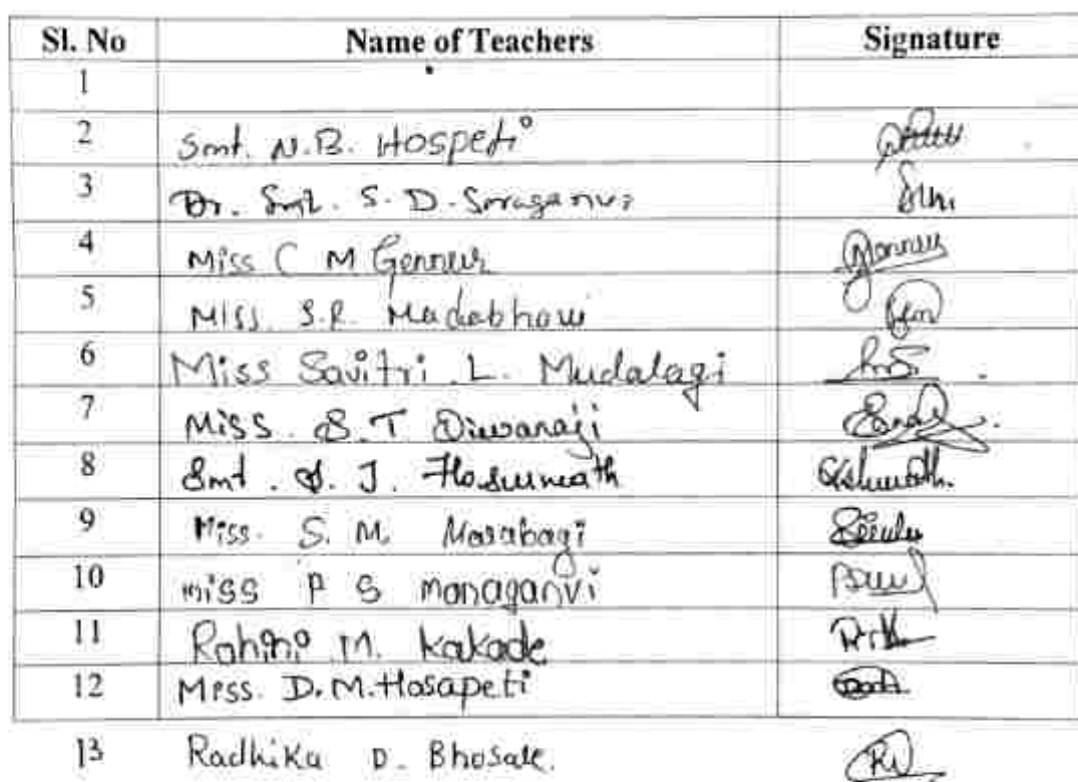 Sl. No Name of Teachers Signature
1
2 Smt. N.B. Hospeti
3 Dr. Smt. S. D. Soraganvi
4 Miss C M Gennur
5 Miss. S.R. Madabhavi
6 Miss Savitri L. Mudalagi
7 Miss. S.T Diwanaji
8 Smt. S. J. Hosurmath
9 Miss. S. M. Masabagi
10 miss P S managanvi
11 Rohini M. Kakade
12 Miss. D.M.Hosapeti
13 Radhika D. Bhosale.